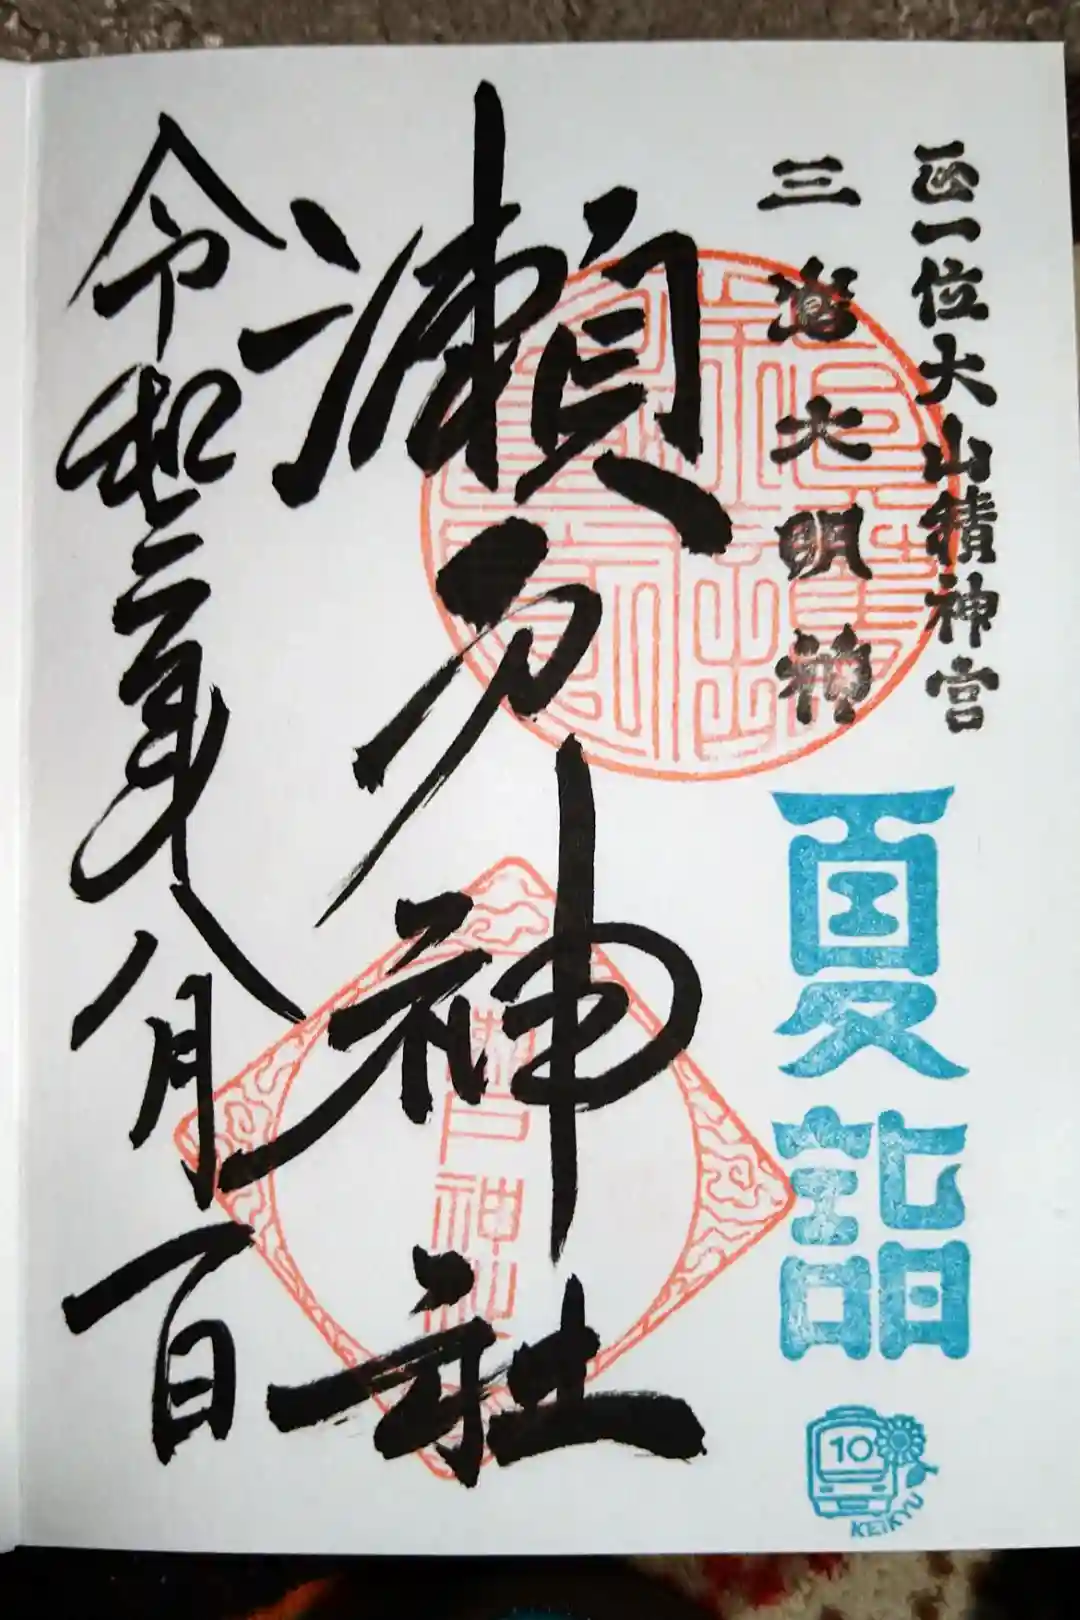 正一位大山積神宮
三嶌大明神
夏詣
10
KEIKYU
瀬戸神社
瀬戸神社
令和二年八月一日